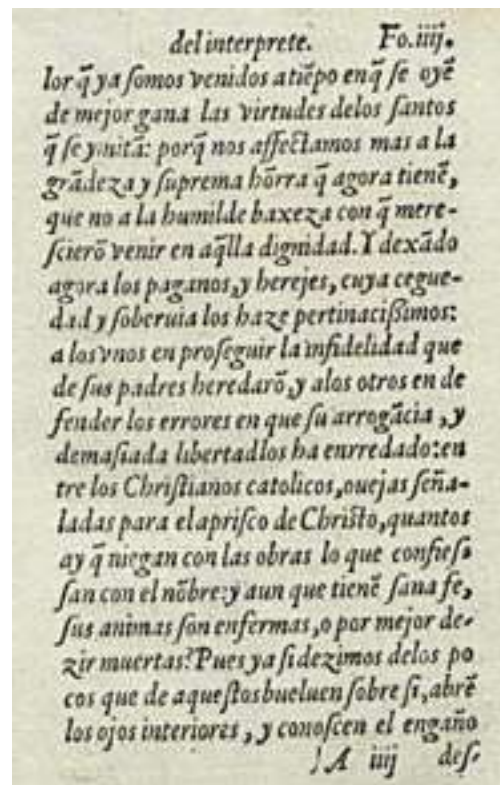 del interprete. Fo.iiij.
lor q̃ ya ſomos venidos atiẽpo enq̃ ſe oyẽ
de mejor gana las virtudes delos ſantos
q̃ ſe ymitã: porq̃ nos affectamos mas a la
grãdeza y ſuprema hõrra q̃ agora tienẽ,
que no a la humilde baxeza con q̃ mere-
ſcierõ venir en aq̃lla dignidad. Y dexãdo
agora los paganos, y herejes, cuya cegue-
dad y ſoberuia los haze pertinacißimos:
a los vnos en proſeguir la infidelidad que
de ſus padres heredarõ, y alos otros en de
fender los errores en que ſu arrogãcia, y
demaſiada libertad los ha enrredado: en
tre los Chriſtianos catolicos, ouejas ſeña-
ladas para el apriſco de Chriſto, quantos
ay q̃ niegan con las obras lo que confieſ-
ſan con el nõbre: y aun que tienẽ ſana fe,
ſus animas ſon enfermas, o por mejor de-
zir muertas? Pues ya ſi dezimos delos po
cos que de aqueſtos bueluen ſobre ſi, abrẽ
los ojos interiores, y conoſcen el engaño
A iiij deſ-